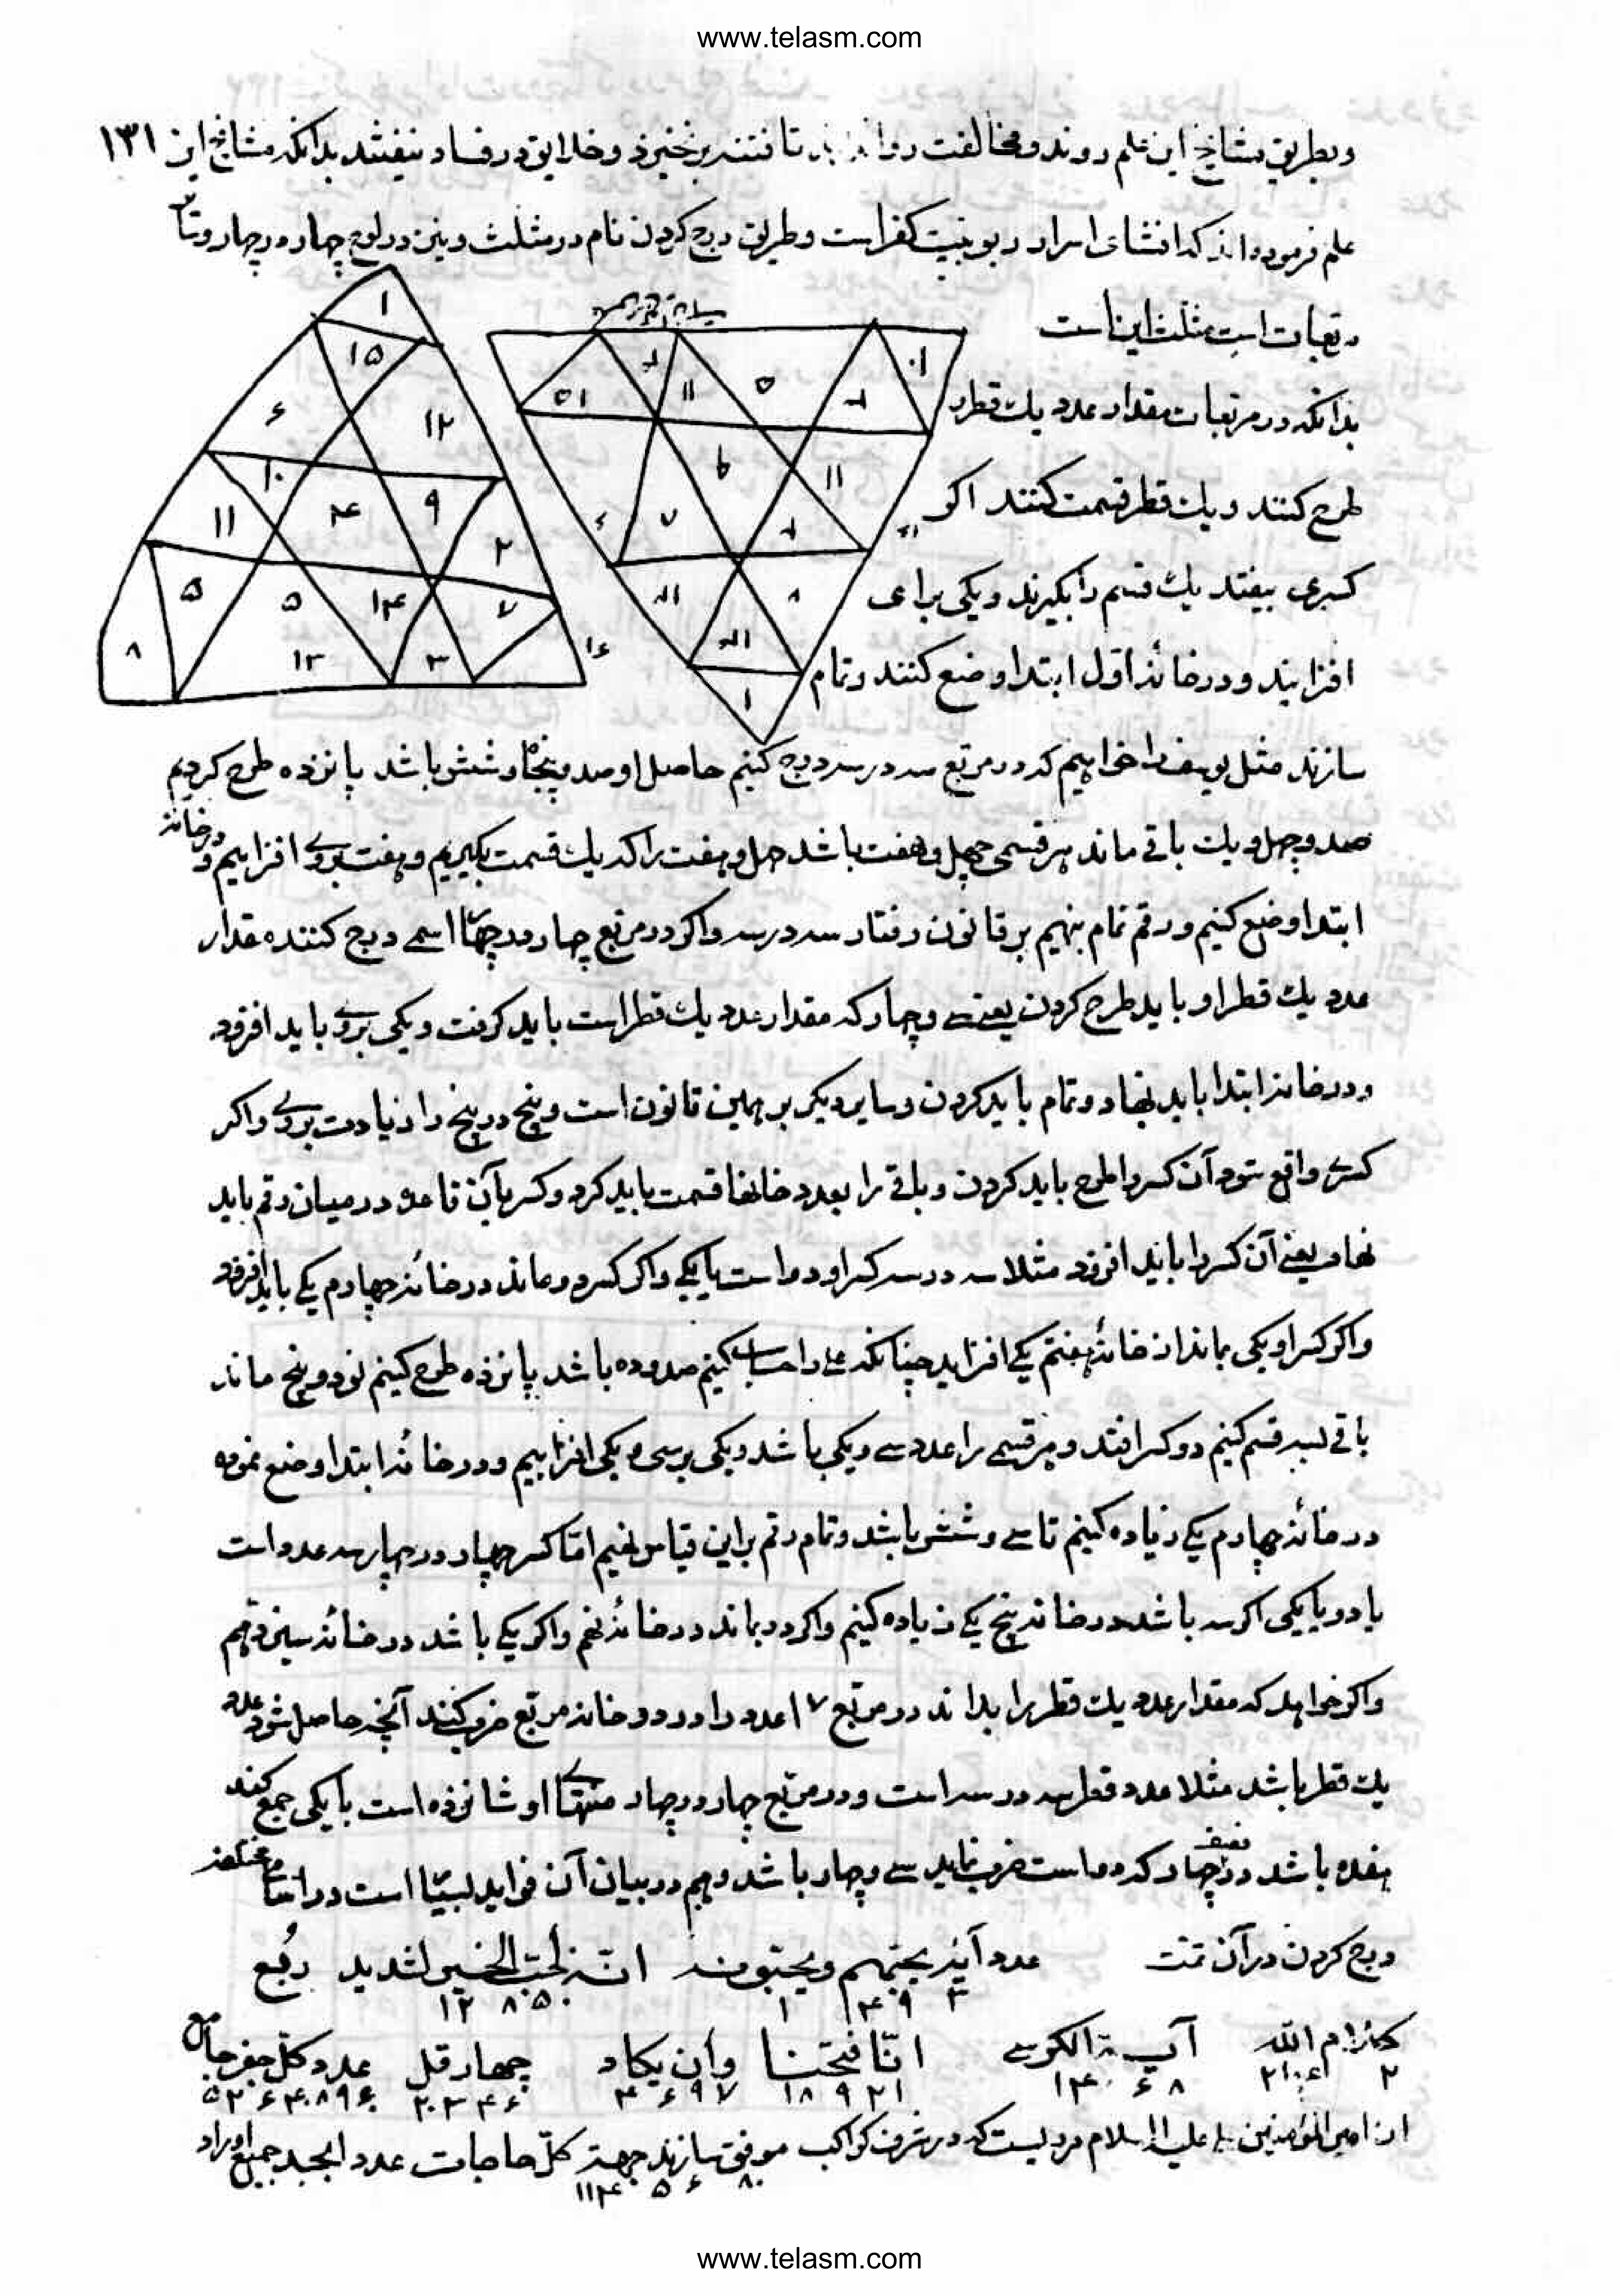 www.telasm.com
۱۳۱
وبطریق مشایخ این علم روند و مخالفت روا تا فتنه برنخیزد و خلایق در فساد نیفتند بدانکه مشایخ این
علم فرموده‌اند که افشای اسرار ربوبیت کفر است و طریق درج کردن نام در مثلث و در لوح چهار در چهار و
مربعات است مثلث این است
بدانکه در مربعات مقدار عدد یك قطر
طرح کنند و یك قطر قسمت کنند اکر
کسری بیفتد یك قسم را بکیرند و یکی برای
افزایند و در خانه اول ابتدا وضع کنند و تمام
۱
۱۵
۶
۱۲
۱۰
۱۱
۴
۹
۲
۵
۵
۱۴
۷
۸
۱۳
۳
۱۶
۱۵
۱۱
۵
۱۰
۱۱
۷
۸
۱
سازند مثل یوسف را خواهیم که در مربع سه در سه درج کنیم حاصل او صد و پنجاه و شش باشد پانزده طرح کردیم
صد و چهل و یك باقی ماند هر قسمی چهل و هفت باشد چهل و هفت را که یك قسمت بکیریم و هفت بروی افزاییم و در خانه
ابتدا وضع کنیم و رقم تمام بنهیم بر قانون رفتار سه در سه و اکر در مربع چهار در چهار اسمی درج کننده مقدار
عدد یك قطر او باید طرح کردن یعنی سی و چهار که مقدار عدد یك قطر است باید کرفت و یکی بروی باید افزود
و در خانه ابتدا باید نهاد و تمام باید کردن و سایر دیکر بر همین قانون است و پنج در پنج را زیادت بروی و اکر
کسری واقع شود آن کسر را طرح باید کردن و باقی را بعدد خانها قسمت باید کرد و کسر بآن قاعده در میان رقم باید
نهاد یعنی آن کسر را باید افزود مثلا سه در سه کسر او دو است یا یکی و اکر کسر دو ماند در خانه چهارم یکی باید افزود
و اکر کسر او یکی بماند از خانه هفتم یکی افزاید چنانکه علی را حساب کنیم صد و ده باشد پانزده طرح کنیم نود و پنج ماند
باقی بسه قسم کنیم دو کسر افتد و هر قسمی را عدد سی و یکی باشد و یکی بر سی و یکی افزاییم و در خانه ابتدا وضع نموده
در خانه چهارم یکی زیاده کنیم تا سی و شش باشد و تمام رقم براین قیاس نهیم اما کسر چهار در چهار سه عدد است
یا دو یا یکی اکر سه باشد در خانه پنج یکی زیاده کنیم و اکر دو بماند در خانه نهم و اکر یکی باشد در خانه سیزدهم
و اکر خواهد که مقدار عدد یك قطر را بداند در مربع ۱۷ عدد را در دو خانه مربع ضرب کنند آنچه حاصل شود عدد
یك قطر باشد مثلا عدد قطر سه در سه است و در مربع چهار در چهار منتهای او شانزده است با یکی جمع کنند
هفده باشد در نصف چهار که دو است ضرب نماید سی و چهار باشد و هم در بیان آن فواید بسیار است در اسامی مختلفه
درج کردن در آن تمت عدد آیه یحبهم ویحبونه انه لحب الخیر لشدید ربع
۳ ۹ ۴ ۱ ۱ ۵۰ ۸ ۱۲
کلام الله آیة الکرسی انا فتحنا وان یکاد چهار قل عدد کل جفر جامع
۲ ۲۱۰۶۱ ۱۴۰ ۶ ۸ ۱۸ ۹ ۲۱ ۴ ۶ ۹ ۷ ۲۰ ۳ ۴ ۶ ۵۲ ۶ ۴۰۸۹۶۰
از امیر المؤمنین علی علیه السلام مرویست که در شرف کواکب موفق سازند جهة کل حاجات عدد ابجد جمیع اوراد
۱۱۴ ۵ ۶ ۸۰
www.telasm.com